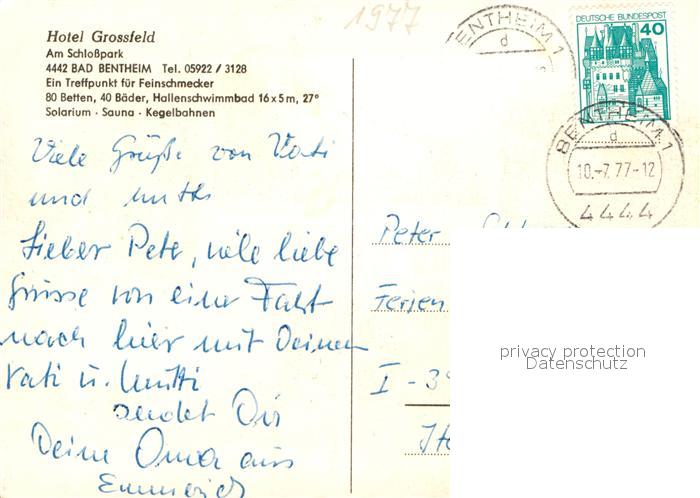 1977
Hotel Grossfeld
Am Schloßpark
4442 BAD BENTHEIM Tel. 05922 / 3128
Ein Treffpunkt für Feinschmecker
80 Betten, 40 Bäder, Hallenschwimmbad 16 x 5 m, 27°
Solarium · Sauna · Kegelbahnen
BENTHEIM 1
d
DEUTSCHE BUNDESPOST
40
BENTHEIM 1
d
10.-7.77-12
4444
Viele Grüße von Vati
und Mutti
Lieber Peter, viele liebe
Grüsse von einer Fahrt
nach hier mit Deinen
Vati u. Mutti
sendet Dir
Deine Oma aus
Emmerich
Peter
Ferien
I - 39
privacy protection
Datenschutz